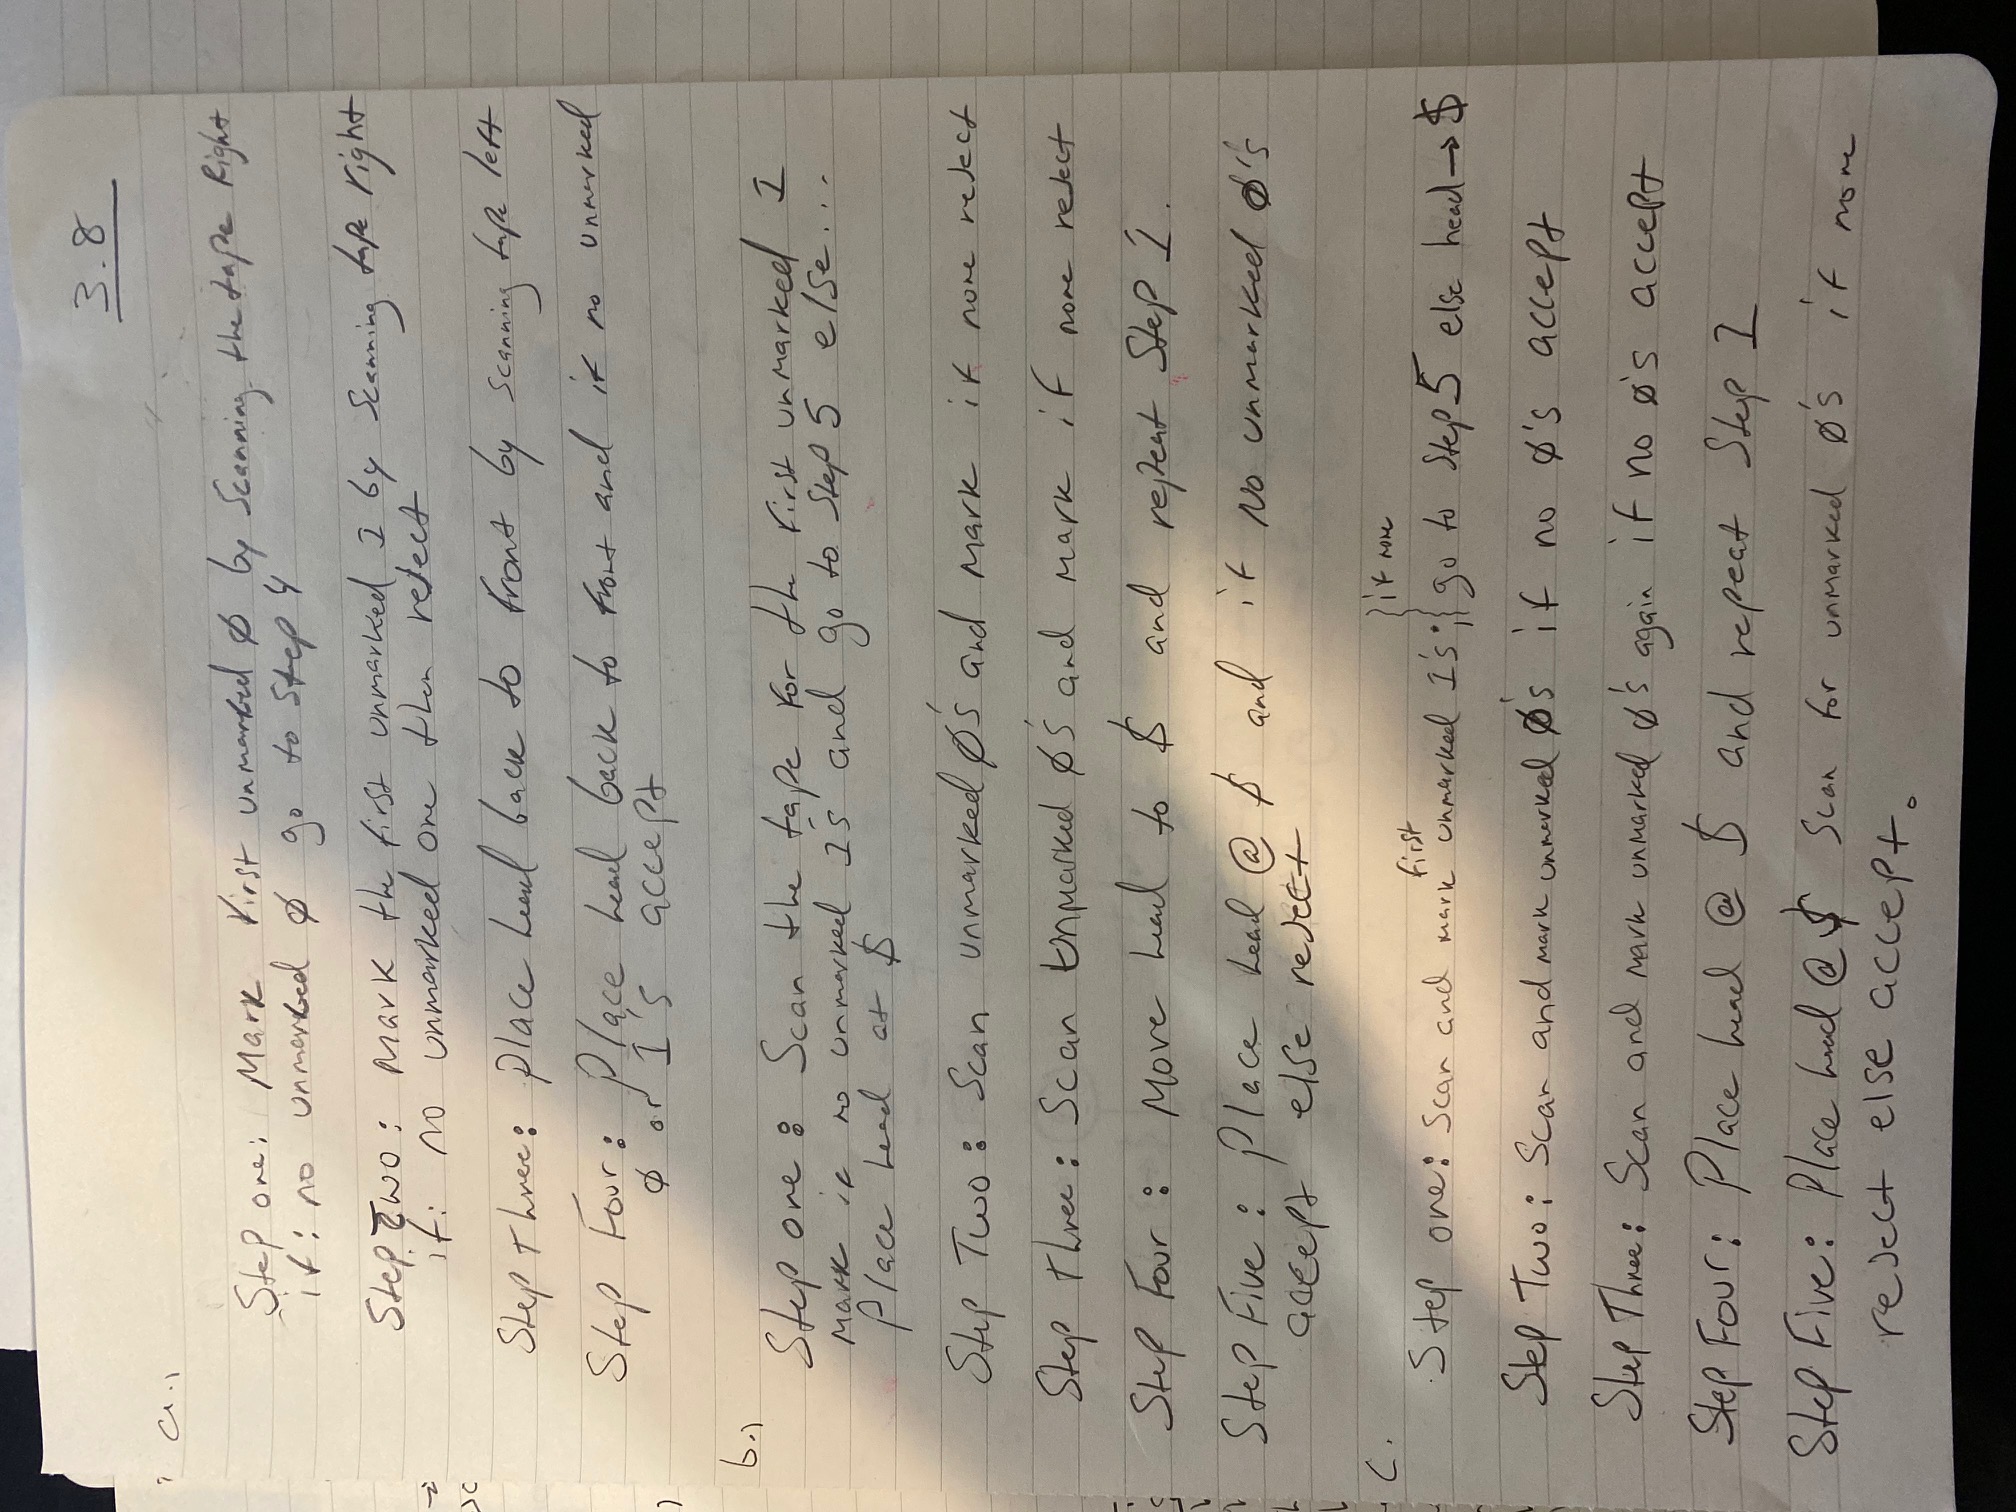 3.8
a.,
Step one: Mark first unmarked Ø by scanning the tape Right
if: no unmarked Ø go to Step 4
Step Two: Mark the first unmarked 1 by Scanning tape right
if: no unmarked one then reject
Step Three: Place head back to front by scanning tape left
Step Four: Place head back to front and if no unmarked
Ø or 1's accept
b.,
Step one: Scan the tape for the first unmarked 1
Mark if no unmarked 1's and go to Step 5 else...
Place head at $
Step Two: Scan unmarked Ø's and Mark if none reject
Step Three: Scan Unmarked Ø's and mark if none reject
Step Four: Move head to $ and repeat Step 1.
Step Five: Place head @ $ and if No unmarked Ø's
accept else reject
c.
Step one: Scan and mark first unmarked 1's; } if none go to Step 5 else head → $
Step Two: Scan and mark unmarked Ø's if no Ø's accept
Step Three: Scan and mark unmarked Ø's again if no Ø's accept
Step Four: Place head @ $ and repeat Step 1
Step Five: Place head @ $ Scan for unmarked Ø's if none
reject else accept.